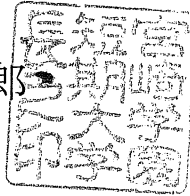 郎
宮崎学園
短期大学
長之印